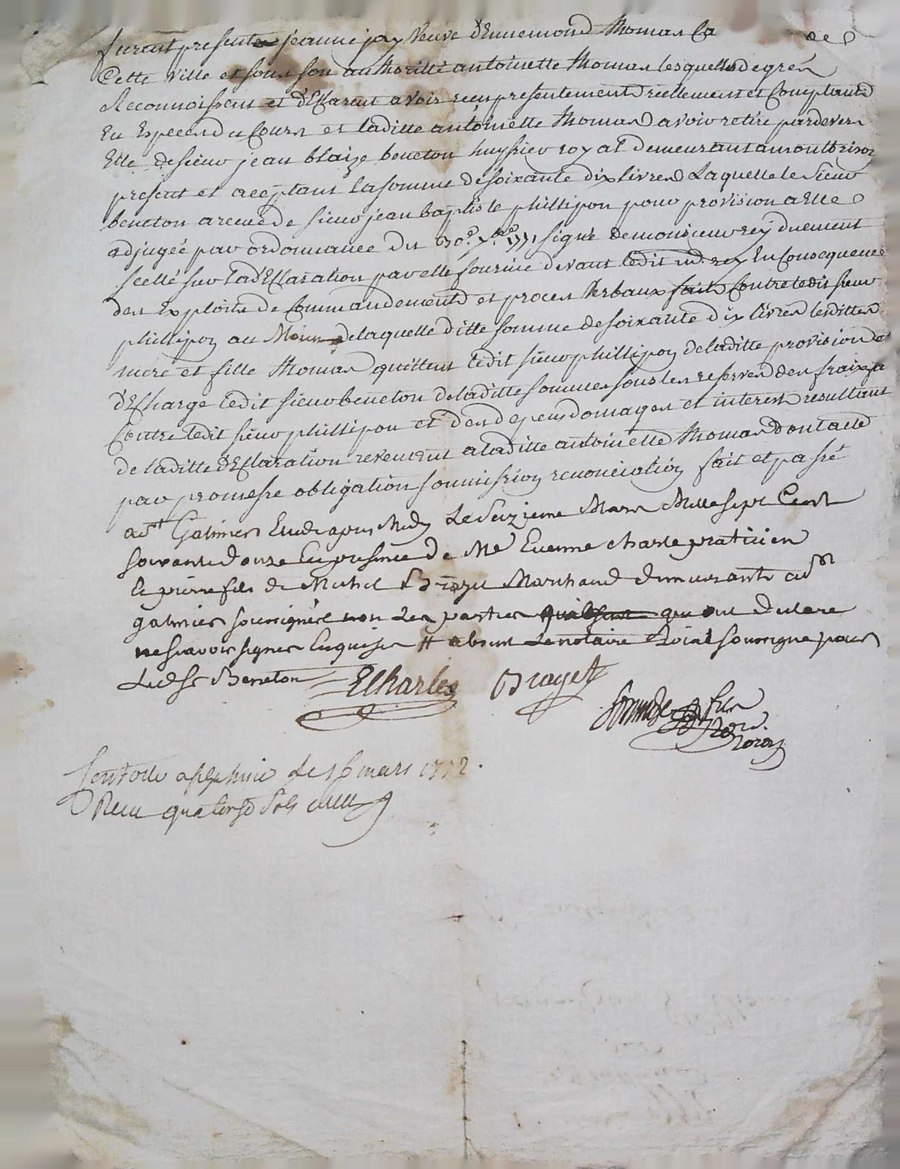 furent presente jeanne jay veuve d'Ennemond thomas la
Cette ville et sous son authorité antoinette thomas lesquelles de gré
Reconnoissent et declarent avoir recu presentement reellement et Comptant
En Especes du Cours et laditte antoinette thomas avoir retiré pardevers
Elle de sieur jean blaize beneton huyssier royal demeurant a montbrison
present et aceptant la somme de soixante dix livres laquelle le sieur
beneton a recue de sieur jean baptiste phillipon pour provision a elle
adjugée par ordonnance du 30e. 7bre. 1771 signé de monsieur rey duement
scellé sur la declaration par elle fournie devant ledit rey En Consequence
des Exploits de Commandements et proces verbaux fait Contre ledit sieur
phillipon au de laquelle ditte somme de soixante dix livres lesdittes
mere et fille thomas quittent ledit sieur phillipon de laditte provision et
decharge ledit sieur beneton de laditte somme sous les reserves des fraix
Contre ledit sieur phillipon et des depens domages et interest resultant
de laditte declaration revenent a laditte antoinette thomas dont acte
par promesse obligation soumission renonciation fait et passé
a st Galmier Etude apres Midy Le seizieme Mars Mille sept Cent
soixante douze En presence de Me Etienne charle praticien
le pierre fils de Michel Brayet Marchand demeurants a st
galmier soussignés non Les parties qui ont declaré
ne scavoir signer Enquises absent Le notaire Roial soussigné
Ledt Sr Beneton
ECharles Brayet
fils
Not. Roial
Controllé a st galmier le 16 mars 1772.
Recu quatorze sols